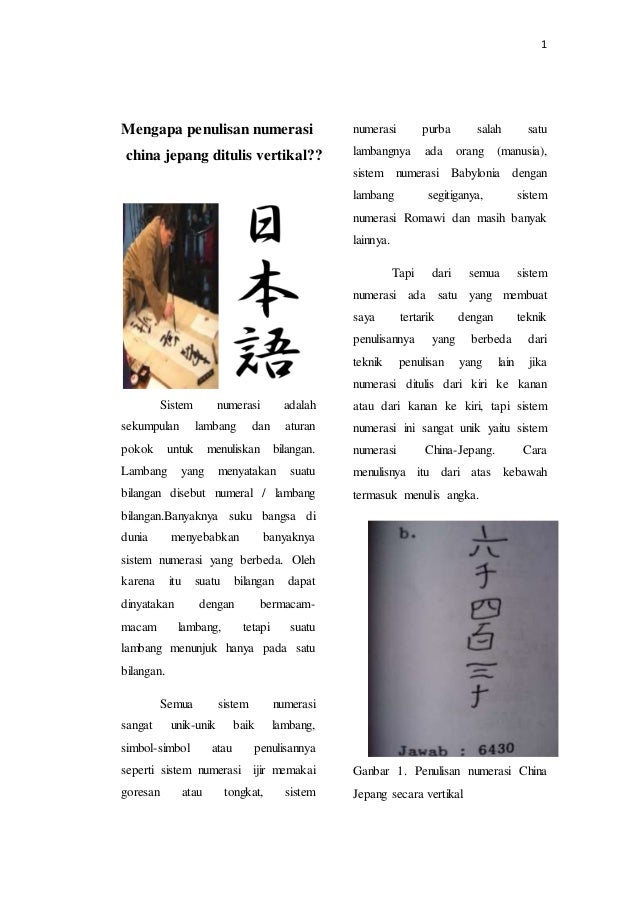 1
Mengapa penulisan numerasi
china jepang ditulis vertikal??
日
本
語
Sistem numerasi adalah
sekumpulan lambang dan aturan
pokok untuk menuliskan bilangan.
Lambang yang menyatakan suatu
bilangan disebut numeral / lambang
bilangan.Banyaknya suku bangsa di
dunia menyebabkan banyaknya
sistem numerasi yang berbeda. Oleh
karena itu suatu bilangan dapat
dinyatakan dengan bermacam-
macam lambang, tetapi suatu
lambang menunjuk hanya pada satu
bilangan.
Semua sistem numerasi
sangat unik-unik baik lambang,
simbol-simbol atau penulisannya
seperti sistem numerasi ijir memakai
goresan atau tongkat, sistem
numerasi purba salah satu
lambangnya ada orang (manusia),
sistem numerasi Babylonia dengan
lambang segitiganya, sistem
numerasi Romawi dan masih banyak
lainnya.
Tapi dari semua sistem
numerasi ada satu yang membuat
saya tertarik dengan teknik
penulisannya yang berbeda dari
teknik penulisan yang lain jika
numerasi ditulis dari kiri ke kanan
atau dari kanan ke kiri, tapi sistem
numerasi ini sangat unik yaitu sistem
numerasi China-Jepang. Cara
menulisnya itu dari atas kebawah
termasuk menulis angka.
b.
六
千
四
百
三
十
Jawab : 6430
Ganbar 1. Penulisan numerasi China
Jepang secara vertikal